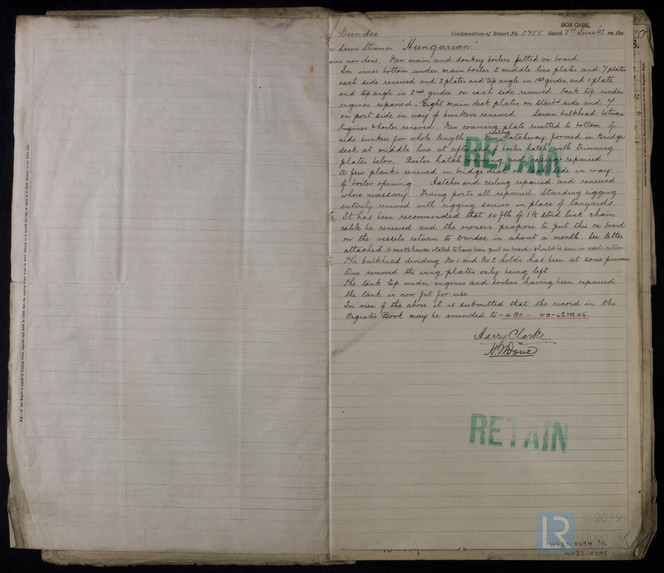 BOX CASE
Dundee Continuation of Report No. 5755 dated 2nd June on the
Screw Steamer "Hungarian"
now done. New main and donkey boilers fitted on board.
In inner bottom under main boiler 2 middle line plates and 4 plates
each side renewed and 2 plates and top angle in 1st girder and 1 plate
and top angle in 2nd girder on each side renewed. Tank top under
engines repaired. Eight main deck plates on starbd side and 7
on port side in way of bunkers renewed. Screen bulkhead between
Engines & boiler renewed. New coaming plate rivetted to bottom of
side bunkers for whole length. New Hatchway formed in Bridge
deck at middle line at after boiler hatch with trimming
plates below. Boiler hatch and repaired.
RETAIN
A few planks renewed in bridge deck side in way
of boiler opening. Hatches and ceiling repaired and renewed
where necessary. Freeing ports all repaired. Standing rigging
entirely renewed with rigging screws in place of lanyards.
It has been recommended that 30 fth of 1⅞ stud link chain
cable be renewed and the owners propose to put this on board
on the vessels return to Dundee in about a month. See letter
attached. A new hawser stated to have been put on board should be seen on vessels return.
The bulkhead dividing No 1 and No 2 holds has been at some previous
time removed the wing plates only being left
The tank top under engines and boilers having been repaired
the tank is now fit for use
In view of the above it is submitted that the record in the
Register Book may be amended to
Harry Clarke
RETAIN
LR
2019